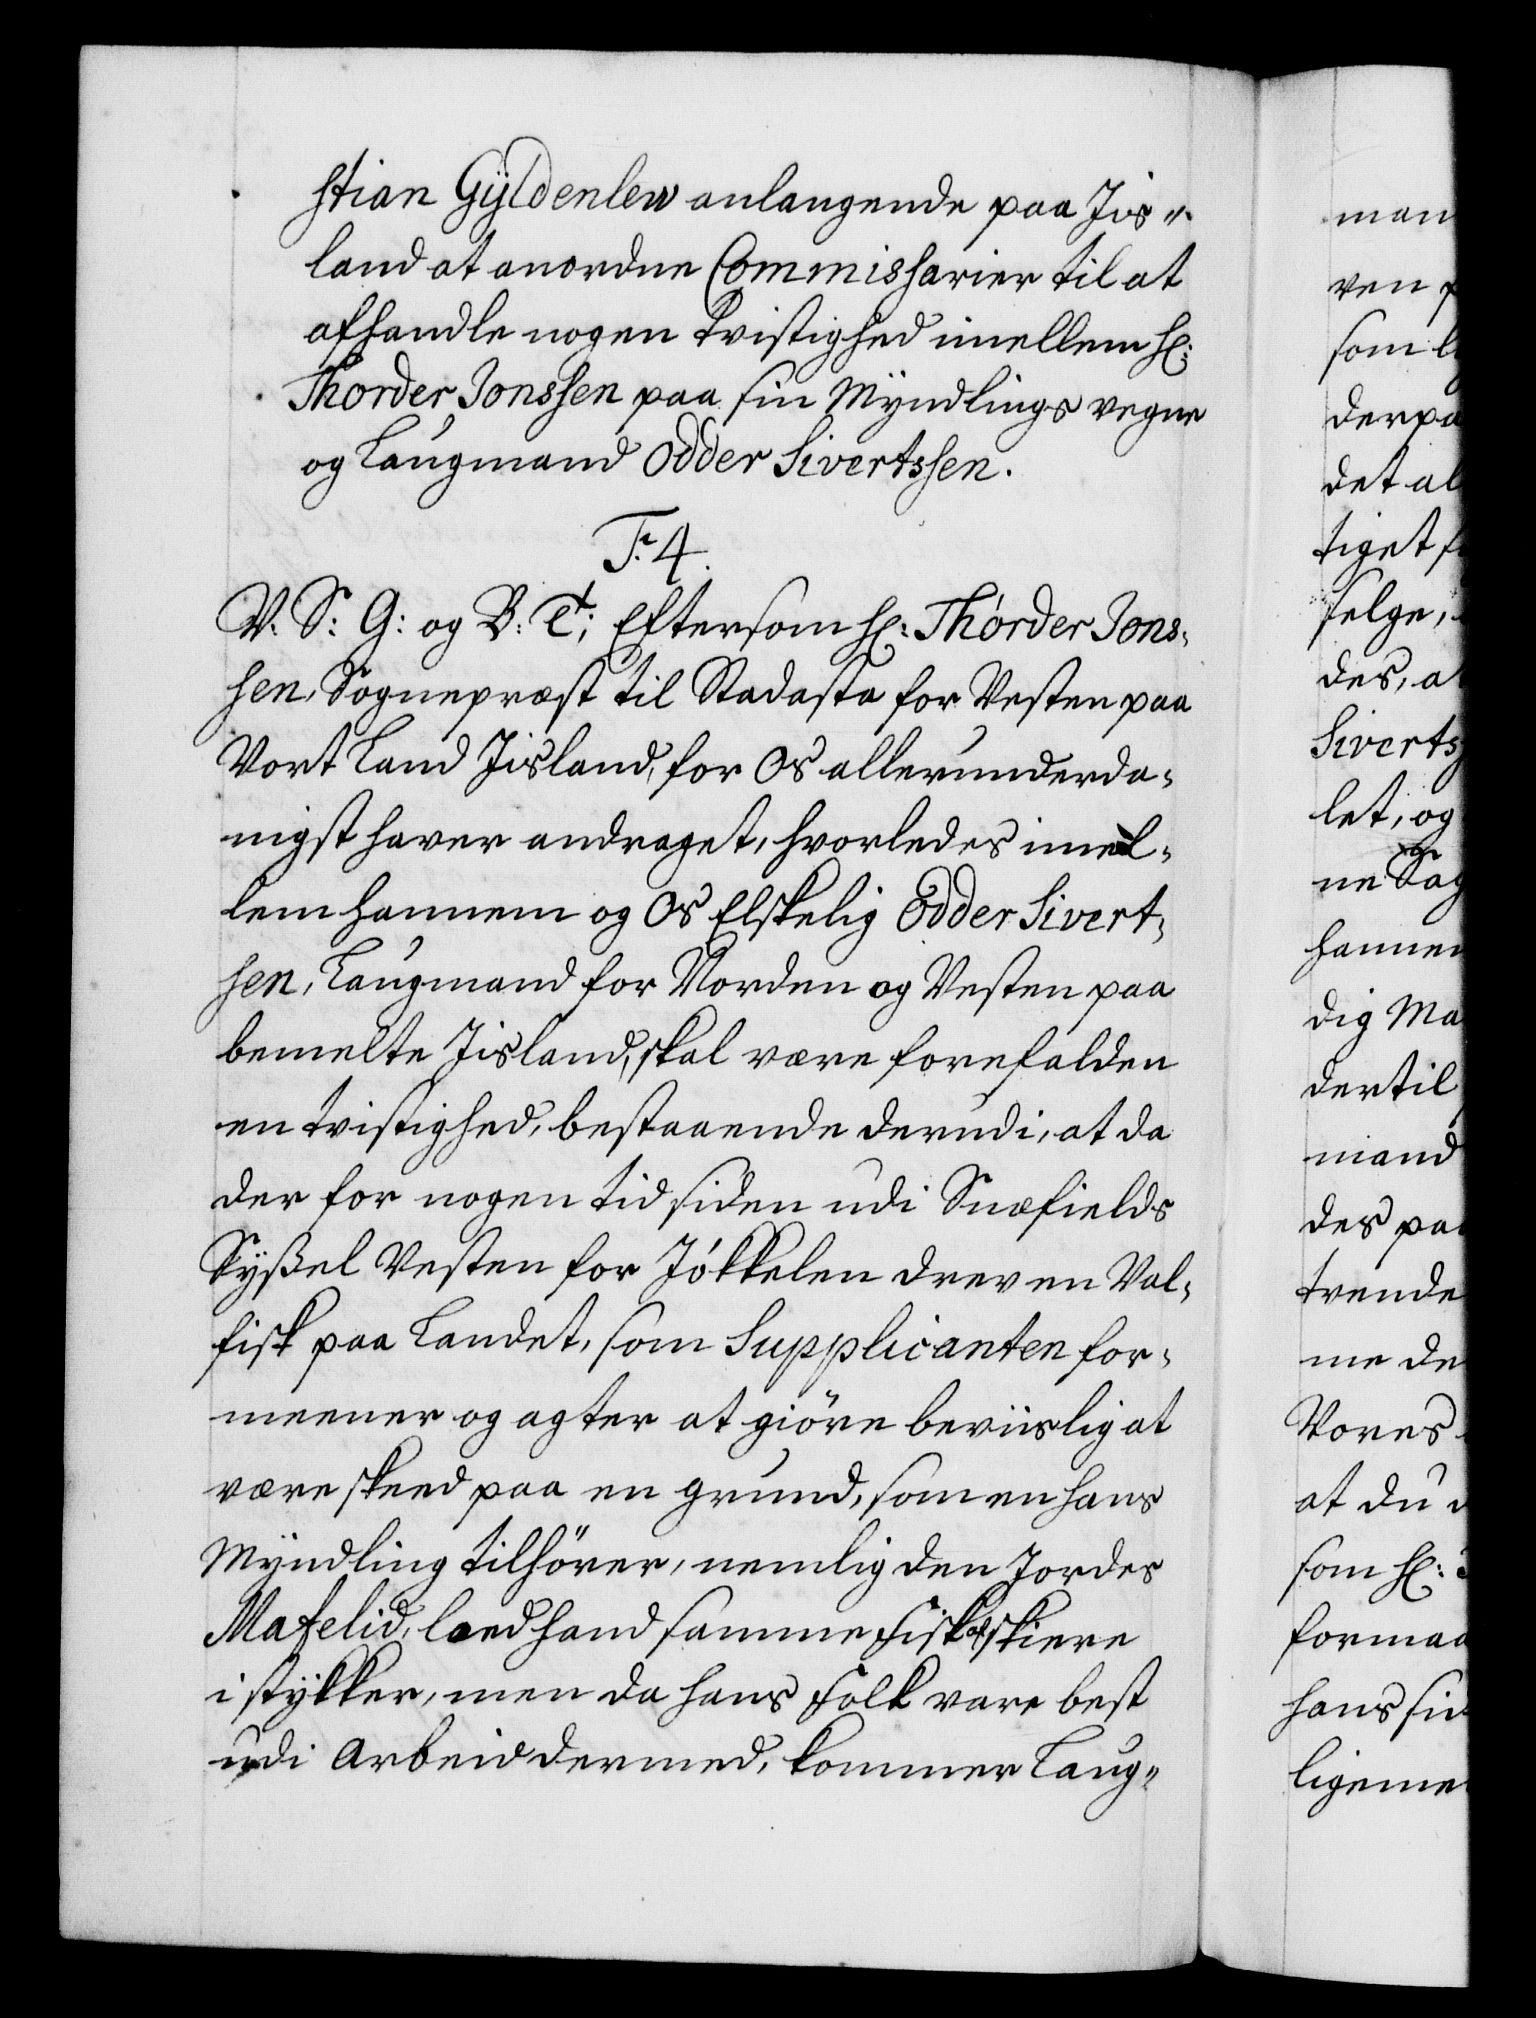 stian Gyldenlew anlangende paa Jis„
land at anordne Commissarier til at
afhandle nogen tvistighed imellem Hr:
Thorder Jonssen paa sin Myndlings vegne
og Laugmand Odder Sivertssen.
F. 4.
V. S: G: og B: Et; Eftersom Hr: Thórder Jons-
sen, Sognepræst til Stadasta for Vesten paa
Vort Land Jisland, for Os allerunderda-
nigst haver andraget, hvorledes imel-
lem hannem og Os Elskelig Odder Sivert-
sen, Laugmand for Norden og Vesten paa
bemelte Jisland, skal være forefalden
en tvistighed, bestaaende derudi, at da
der for nogen tid siden udi Snæfields
Syßel Vesten for Jókkelen drev en Val-
fisk paa Landet, som Supplicanten for-
meener og agter at giöre beviislig at
være skeed paa en grund, som en hans
Myndling tilhörer, nemlig den Jordes
Mafelid, loed hand samme Fisk skiere
i stykker, men da hans Folk vare best
udi Arbeid dermed, kommer Laug„
man
ven
som
derpa
det al
tiget
felge,
des, a
Siverts
let, og
ne Sag
hannem
dig Ma
dertil
mand
des paa
trende
me de
Vores
at du
som Hr:
formaa
hans
ligeme